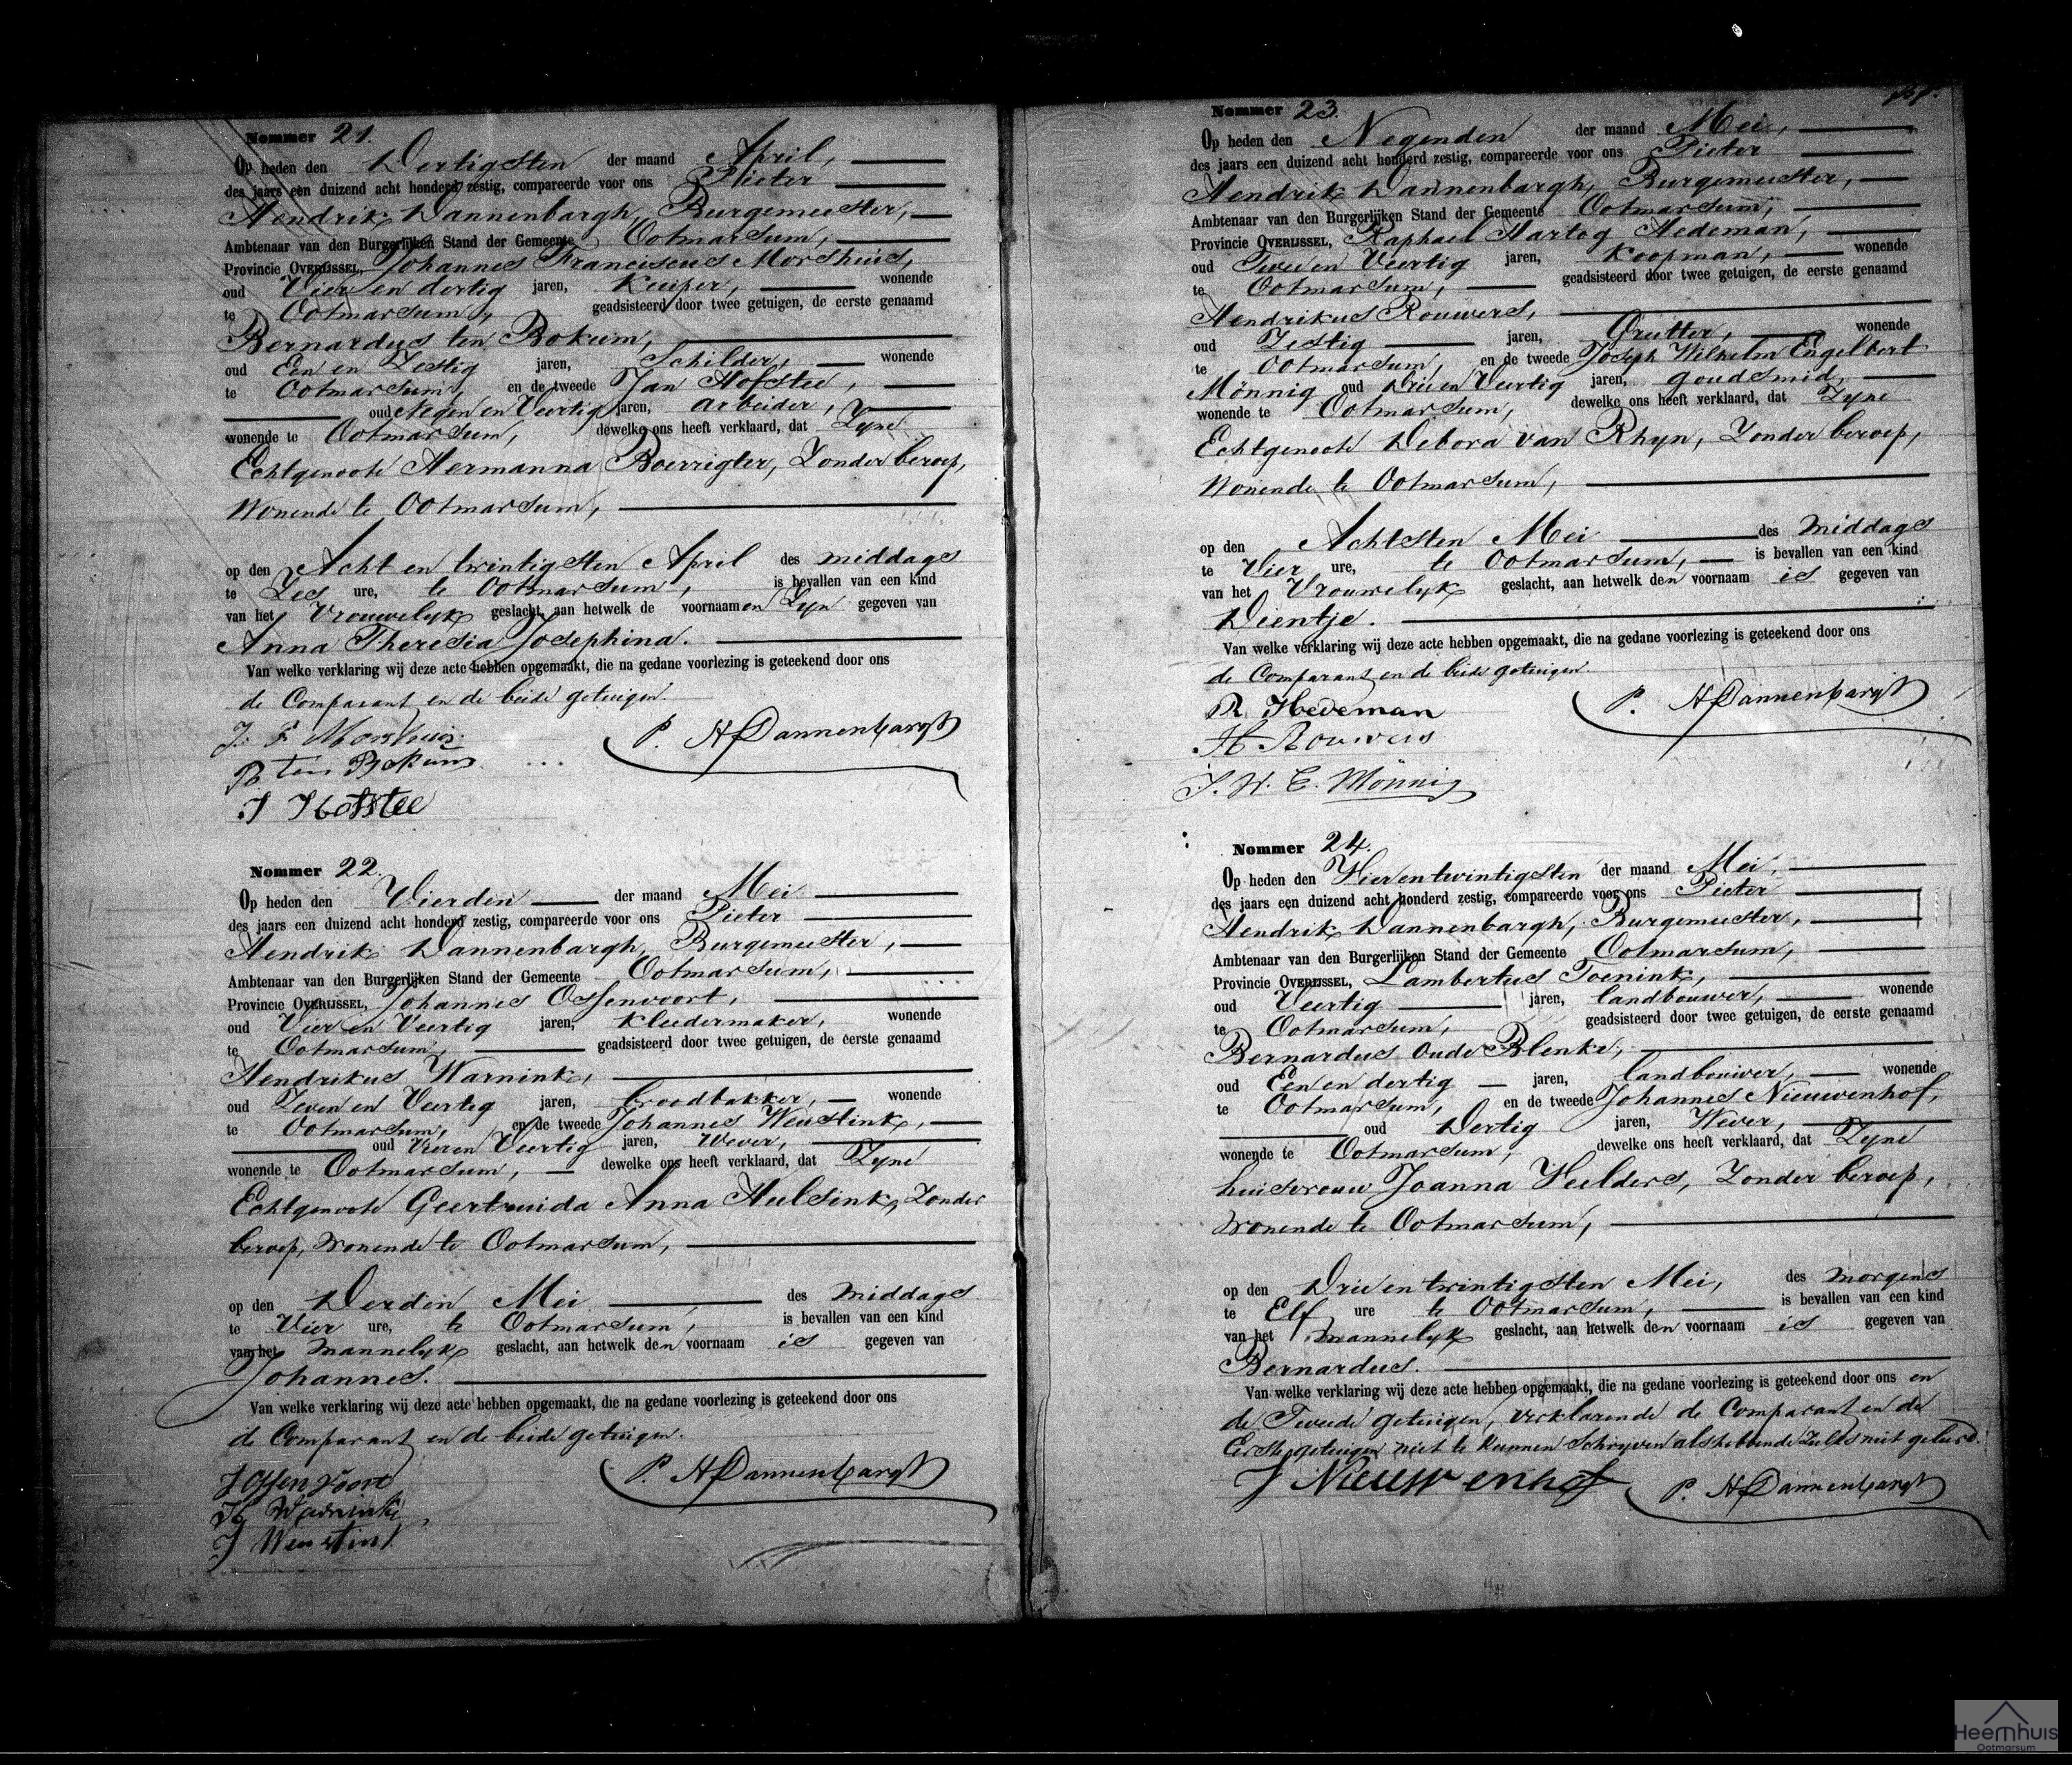 Nommer 21.
Op heden den Dertigsten der maand April,
des jaars een duizend acht honderd zestig, compareerde voor ons Pieter
Hendrik Dannenbargh, Burgemeester,
Ambtenaar van den Burgerlijken Stand der Gemeente Ootmarsum,
Provincie OVERIJSSEL, Johannes Franciscus Morshuis,
oud Vier en dertig jaren, Kuiper, wonende
te Ootmarsum, geadsisteerd door twee getuigen, de eerste genaamd
Bernardus ten Bokum,
oud Een en Zestig jaren, Schilder, wonende
te Ootmarsum, en de tweede Jan Hofstee,
oud Negen en Veertig jaren, arbeider,
wonende te Ootmarsum, dewelke ons heeft verklaard, dat Zyne
Echtgenoote Hermanna Boerrigter, Zonder beroep,
Wonende te Ootmarsum,
op den Acht en twintigsten April des middags
te Zes ure, te Ootmarsum, is bevallen van een kind
van het Vrouwelyk geslacht, aan hetwelk de voornaamen Zyn gegeven van
Anna Theresia Josephina.
Van welke verklaring wij deze acte hebben opgemaakt, die na gedane voorlezing is geteekend door ons
de Comparant en de beide getuigen.
J. F Morshuis
B ten Bokum
P. H Dannenbargh
J Hofstee
Nommer 22.
Op heden den Vierden der maand Mei
des jaars een duizend acht honderd zestig, compareerde voor ons Pieter
Hendrik Dannenbargh, Burgemeester,
Ambtenaar van den Burgerlijken Stand der Gemeente Ootmarsum,
Provincie OVERIJSSEL, Johannes Ossenvoort,
oud Vier en Veertig jaren, Kleedermaker, wonende
te Ootmarsum, geadsisteerd door twee getuigen, de eerste genaamd
Hendrikus Warnink,
oud Zeven en Veertig jaren, broodbakker, wonende
te Ootmarsum, en de tweede Johannes Weustink,
oud Vier en Veertig jaren, Wever,
wonende te Ootmarsum, dewelke ons heeft verklaard, dat Zyne
Echtgenoote Geertruida Anna Hulsink, Zonder
beroep, Wonende te Ootmarsum,
op den Derden Mei des middags
te Vier ure, te Ootmarsum, is bevallen van een kind
van het mannelyk geslacht, aan hetwelk den voornaam is gegeven van
Johannes.
Van welke verklaring wij deze acte hebben opgemaakt, die na gedane voorlezing is geteekend door ons
de Comparant en de beide getuigen.
J Ossenvoort
P. H Dannenbargh
H Warnink
J Weustink
Nommer 23.
Op heden den Negenden der maand Mei,
des jaars een duizend acht honderd zestig, compareerde voor ons Pieter
Hendrik Dannenbargh, Burgemeester,
Ambtenaar van den Burgerlijken Stand der Gemeente Ootmarsum,
Provincie OVERIJSSEL, Raphael Hartog Hedeman,
oud Twee en Veertig jaren, Koopman, wonende
te Ootmarsum, geadsisteerd door twee getuigen, de eerste genaamd
Hendrikus Rouwers,
oud Zestig jaren, Grutter, wonende
te Ootmarsum, en de tweede Joseph Wilhelm Engelbert
Mönnig oud Drie en Veertig jaren, goudsmid,
wonende te Ootmarsum, dewelke ons heeft verklaard, dat Zyne
Echtgenoote Debora van Rhyn, Zonder beroep,
Wonende te Ootmarsum,
op den Achtsten Mei des middags
te Vier ure, te Ootmarsum, is bevallen van een kind
van het Vrouwelyk geslacht, aan hetwelk den voornaam is gegeven van
Dientje.
Van welke verklaring wij deze acte hebben opgemaakt, die na gedane voorlezing is geteekend door ons
de Comparant en de beide getuigen.
R Hedeman
P. H Dannenbargh
H Rouwers
J. W. E. Mönnig
Nommer 24.
Op heden den Vier en twintigsten der maand Mei,
des jaars een duizend acht honderd zestig, compareerde voor ons Pieter
Hendrik Dannenbargh, Burgemeester,
Ambtenaar van den Burgerlijken Stand der Gemeente Ootmarsum,
Provincie OVERIJSSEL, Lambertus Toenink,
oud Veertig jaren, landbouwer, wonende
te Ootmarsum, geadsisteerd door twee getuigen, de eerste genaamd
Bernardus oude Blenke,
oud Een en dertig jaren, landbouwer, wonende
te Ootmarsum, en de tweede Johannes Nieuwenhof,
oud Dertig jaren, Wever,
wonende te Ootmarsum, dewelke ons heeft verklaard, dat Zyne
huisvrouw Joanna Velders, Zonder beroep,
Wonende te Ootmarsum,
op den Drie en twintigsten Mei, des morgens
te Elf ure te Ootmarsum, is bevallen van een kind
van het mannelyk geslacht, aan hetwelk den voornaam is gegeven van
Bernardus.
Van welke verklaring wij deze acte hebben opgemaakt, die na gedane voorlezing is geteekend door ons en
de Tweede getuigen, verklarende de Comparant en de
Eerste getuigen niet te kunnen Schryven als hebbende Zulks niet geleerd.
J Nieuwenhof
P. H Dannenbargh
Heemhuis
Ootmarsum